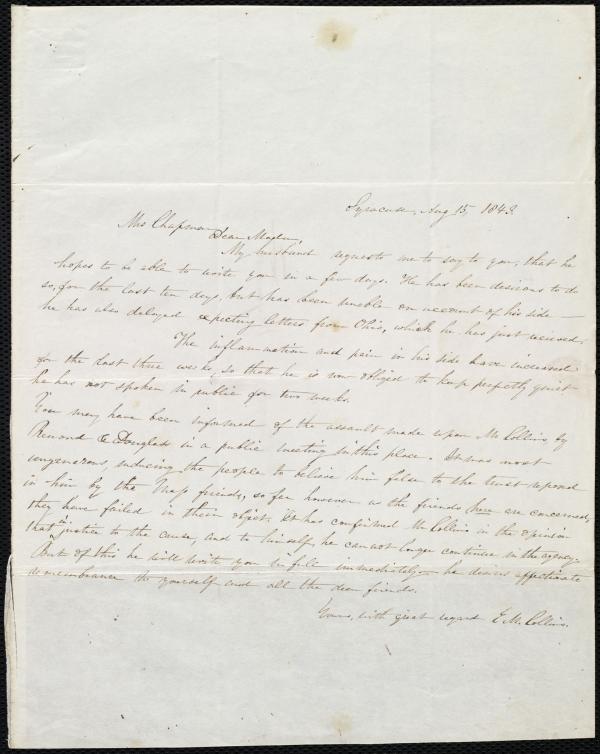 Syracuse, Aug 15, 1843.
Mrs Chapman
Dear Madam,
My husband requests me to say to you, that he
hopes to be able to write you in a few days. He has been desirous to do
so, for the last ten days, but has been unable on account of his side —
he has also delayed expecting letters from Ohio, which he has just received.
The inflammation and pain in his side have increased
for the last three weeks, so that he is now obliged to keep perfectly quiet
he has not spoken in public for two weeks.
You may have been informed of the assault made upon Mr Collins by
Remond & Douglass in a public meeting in this place. It was most
ungenerous, inducing the people to believe him false to the trust reposed
in him by the Mass friends, so far however as the friends here are concerned,
they have failed in their object. It has confirmed Mr Collins in the opinion
that in justice to the cause, and to himself, he can not longer continue in the agency.
But of this he will write you in full immediately — he desires affectionate
remembrance to yourself and all the dear friends.
Yours, with great regard E. M. Collins.